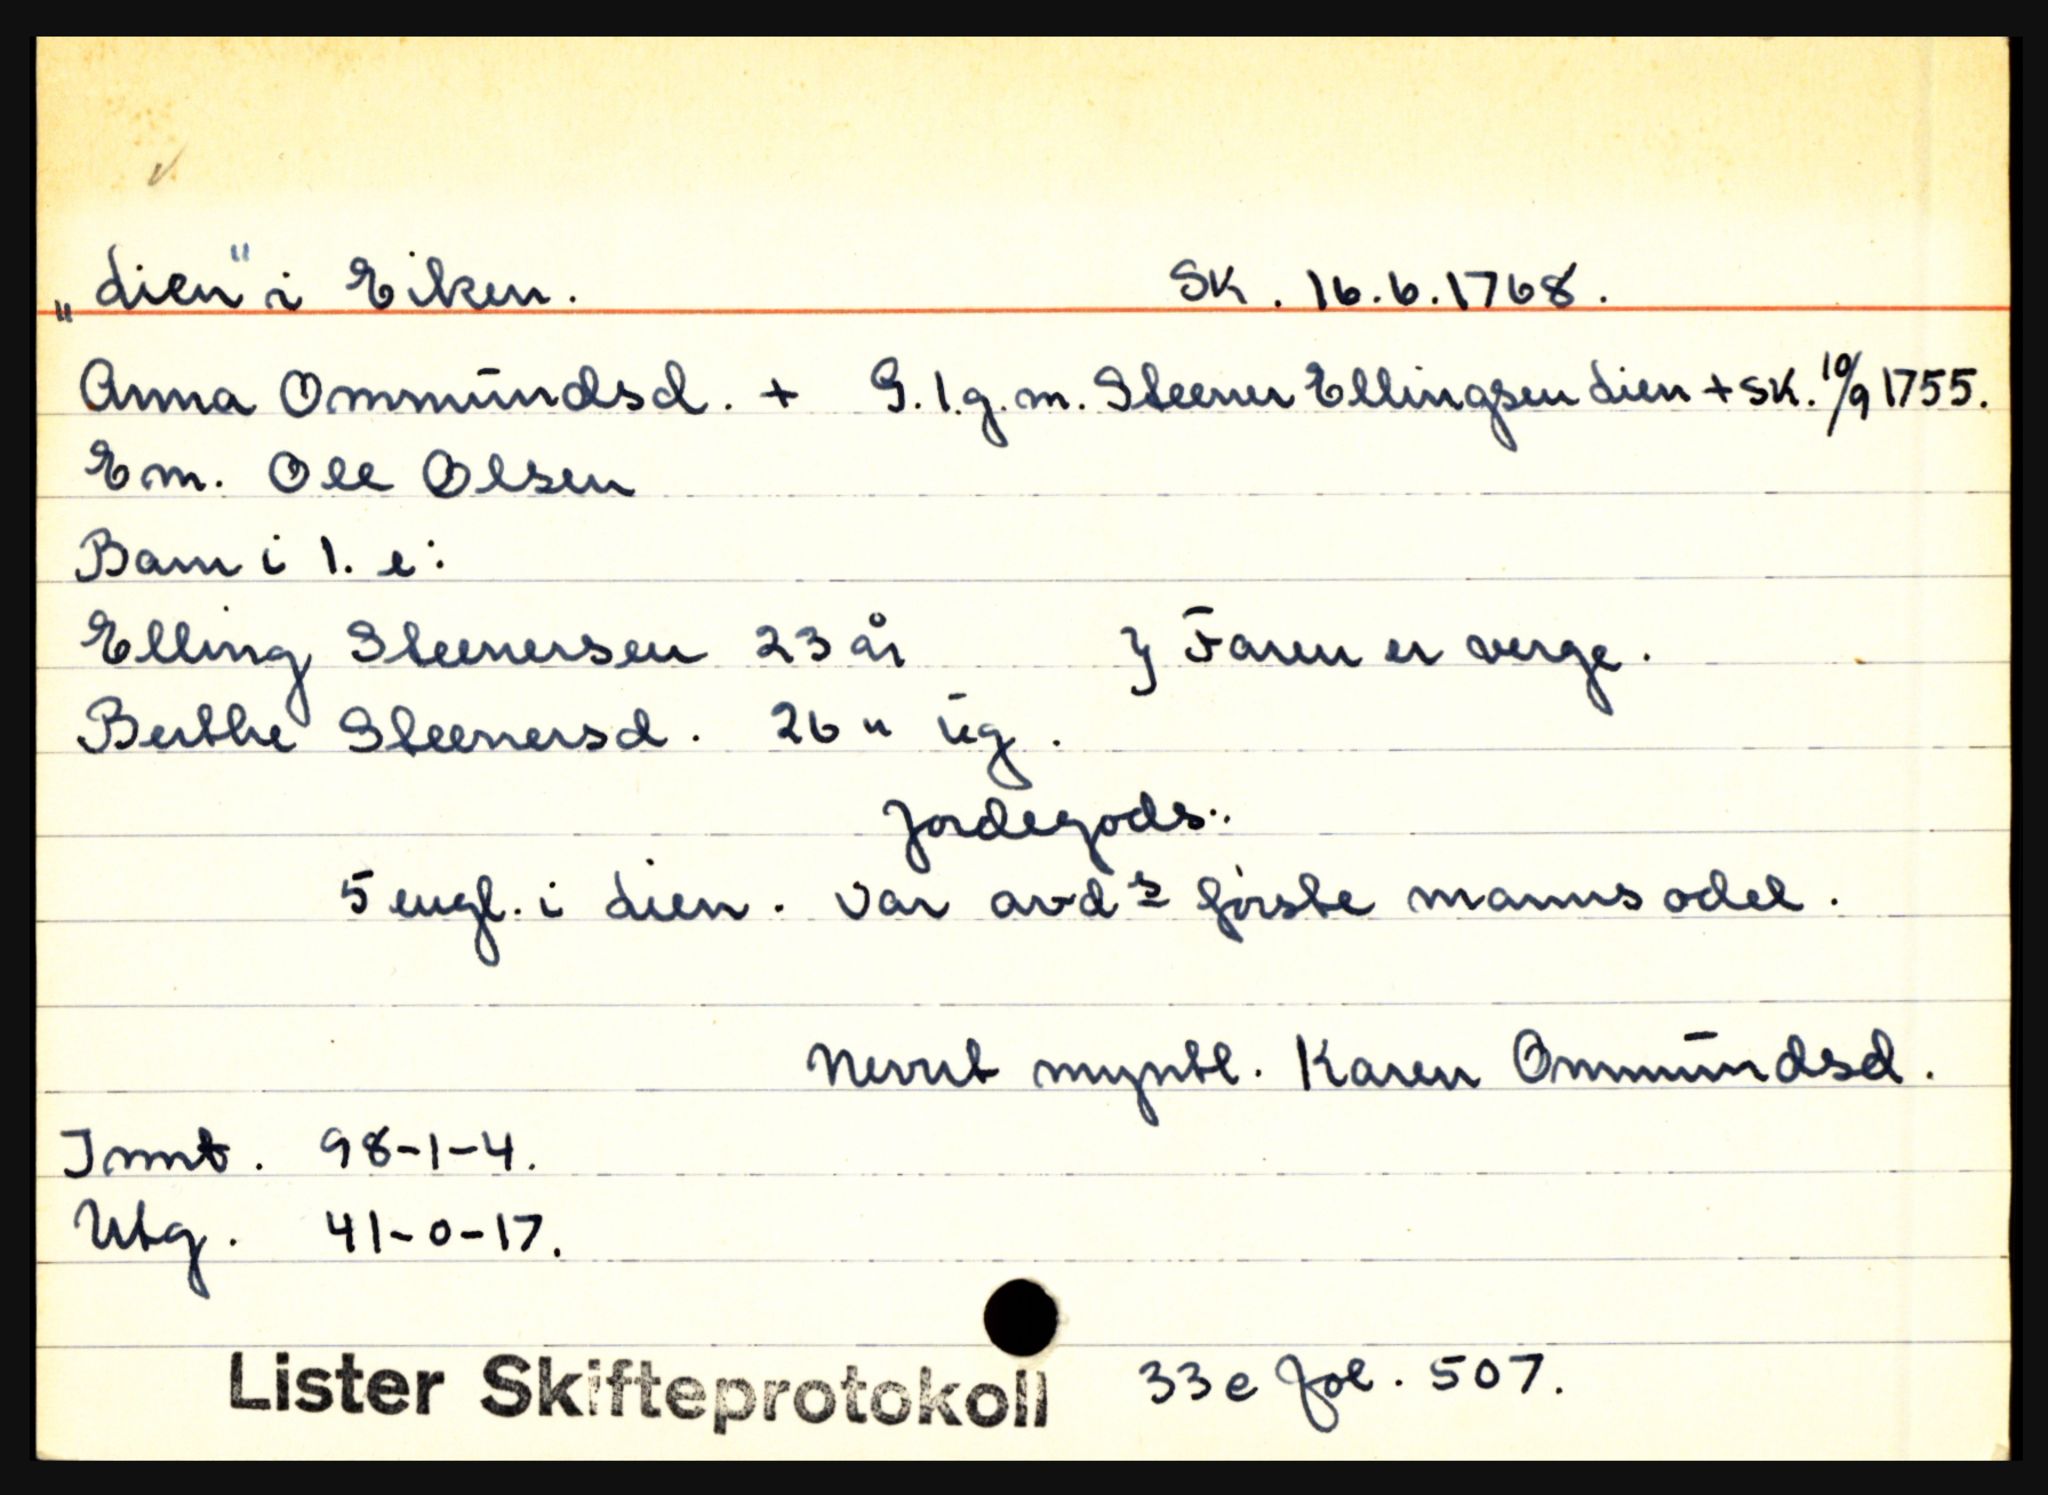 „Lien" i Eiken. SK. 16.6.1768.
Anna Ommundsd. + G. 1. g. m. Steener Ellingsen Lien + SK. 10/9 1755.
Em. Ole Olsen
Barn i 1. e:
Elling Steenersen 23 år } Faren er verge.
Berthe Steenersd. 26 " ug.
Jordegods:
5 engl. i Lien. Var avds første manns odel.
Nevnt myntl. Karen Ommundsd.
Innt. 98-1-4.
Utg. 41-0-17.
Lister Skifteprotokoll 33e fol. 507.